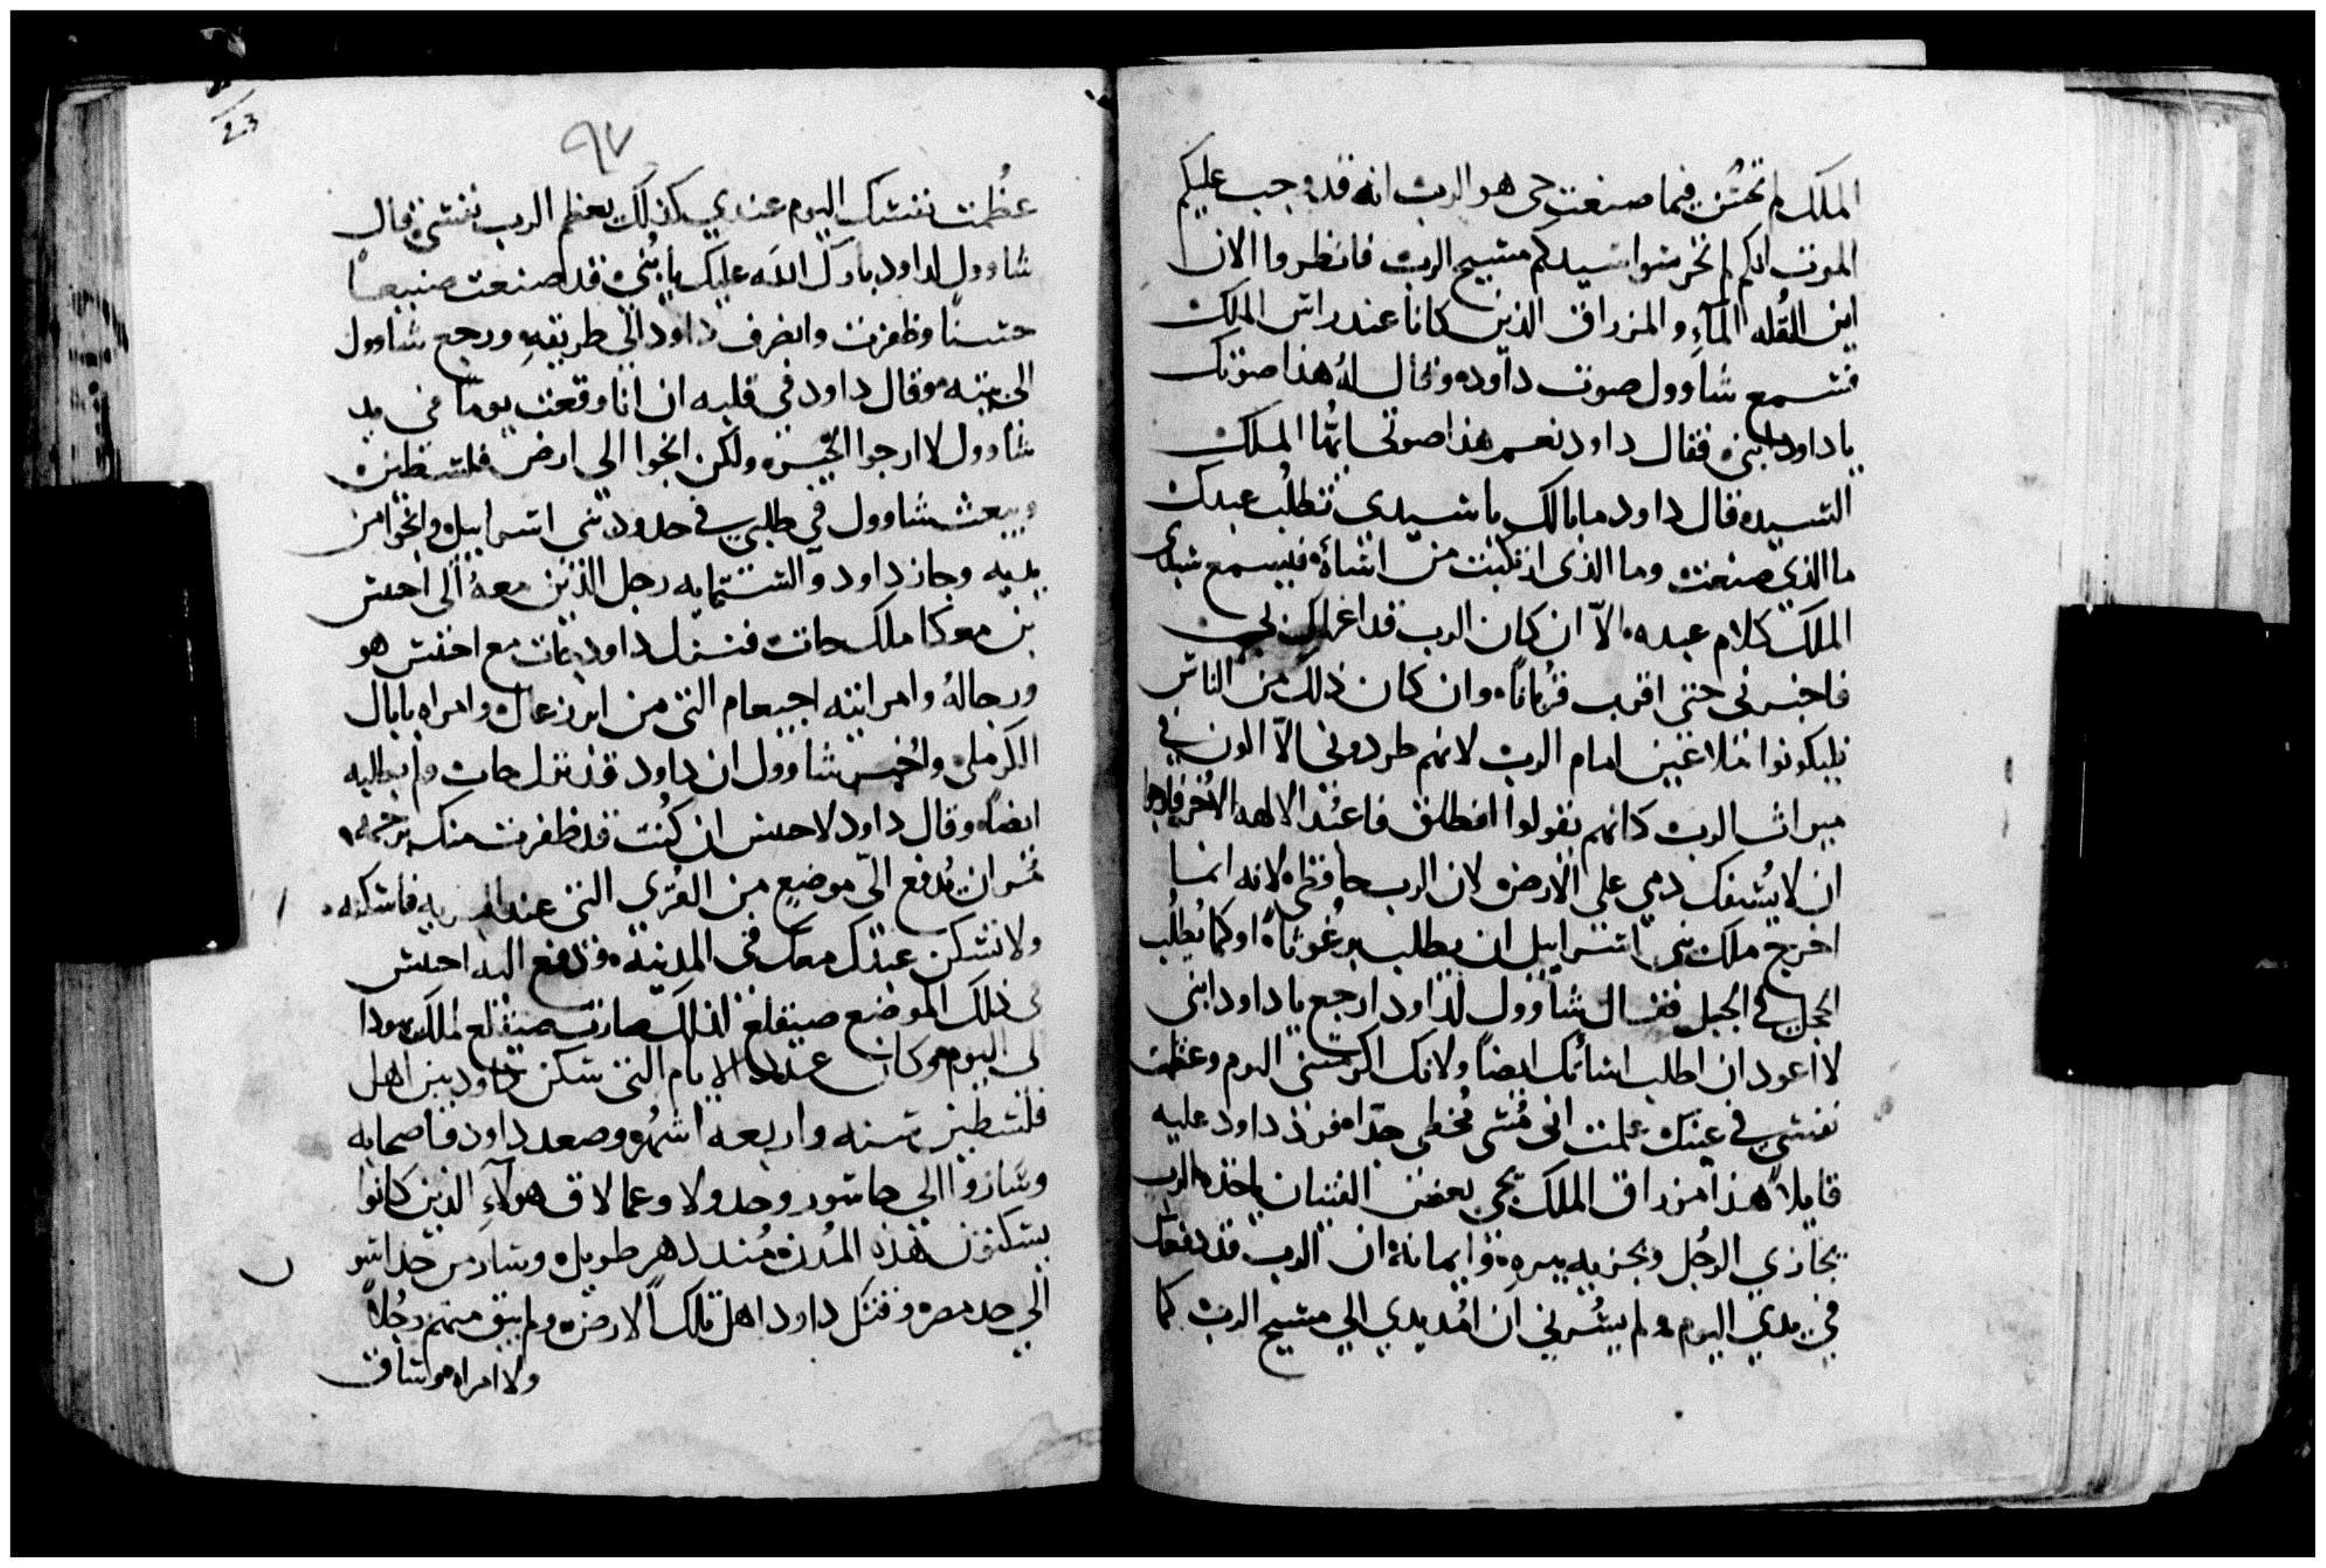 الملك لم تحسن فيما صنعت حى هو الرب انه قد وجب عليكم
الموت لكم لم تحرسوا سيدكم مسيح الرب فانظروا الان
اين القله المآء والمزراق الذين كانا عند راس الملك
فسمع شاوول صوت داود وقال لهُ هذا صوتك
يا داود ابنى فقال داود نعم هذا صوتى ايها الملك
السيد قال داود ما بالك يا سيدي تطلب عبدك
ما الذي صنعت وما الذى ارتكبت من اساة فيسمع سيدى
الملك كلام عبده الاّ ان كان الرب قد اغراك بى
فاخبرنى حتى اقرب قرباناً وان كان ذلك من الناس
فليكونوا ملاعين امام الرب لانهم طردونى الاّ اكون في
ميراث الرب كانهم يقولوا انطلق فاعبُد الالهه الاُخر
ان لا يُسفك دمي على الارض لان الرب حافظى لانه انما
اخرج ملك بنى اسراييل ان يطلب برغوثاً او كما يُطلب
الحجل في الجبل فقال شاوول لداود ارجع يا داود ابنى
لا اعود ان اطلب اسائتك ايضاً ولانك اكرمتنى اليوم وعظمت
نفسي في عينك علمت انى مُسى مُخطى جدّا فرد داود عليه
قايلاً هذا مزراق الملك يجى بعض الفتيان ياخذه الرب
يجازي الرجُل ويجزيه ببره وايمانه ان الرب قد دفعك
في يدي اليوم ولم يسُرني ان امُد يدي الي مسيح الرب كما
٩٧
23
عظُمت نفسك اليوم عندي كذلك يعظم الرب نفسى قال
شاوول لداود بارك اللَه عليك يا بُنى قد صنعت صنيعاً
حسناً وظفرت وانصرف داود الي طريقهِ ورجع شاوول
الى بيته وقال داود في قلبه ان انا وقعت يوماً فى يد
شاوول لا ارجوا الخير ولكن انجوا الى ارض فلسطين
ويبعث شاوول في طلبي في حدود بنى اسراييل وانجوا من
يديه وجاز داود والستمايه رجل الذين معهُ الى احيش
بن معوكا ملك جات فنزل داود بجات مع احيش هو
ورجالهُ وامراتيه اجيعام التى من ايزرعال وامراه نابال
الكرملى واُخبر شاوول ان داود قد نزل جات ولم يطلبه
ايضاً وقال داود لاحيش ان كُنت قد ظفرت منك برحمه
مُر ان يُدفع الىّ موضع من القُرى التى عند فاسكنه
ولا يسكن عبدك معك فى المدينه فدفع اليه احيش
فى ذلك الموضع صيقلغ لذلك صارت صيقلغ لملك يهودا
الى اليوم وكان عدد الايام التى سكن داود بين اهل
فلسطين سنه واربعه اشهُر وصعد داود واصحابه
وساروا الي جاسور وجدولا وعمالاق هولآءِ الذين كانوا
يسكنون هذه المُدن مُند دهر طويل وسار من حد اسو
الي حد مصر وقتل داود اهل تلك الارض ولم يبق منهم رجُلاً
ولا امراه وساق